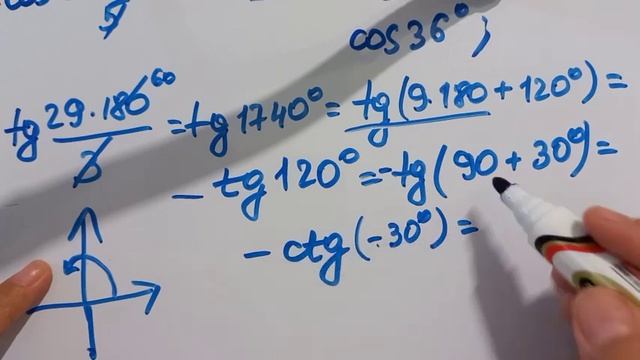 cos36°;
tg 29·180/3 60 = tg 1740° = tg(9·180 + 120°) =
- tg 120° = -tg(90 + 30°) =
- ctg(-30°) =